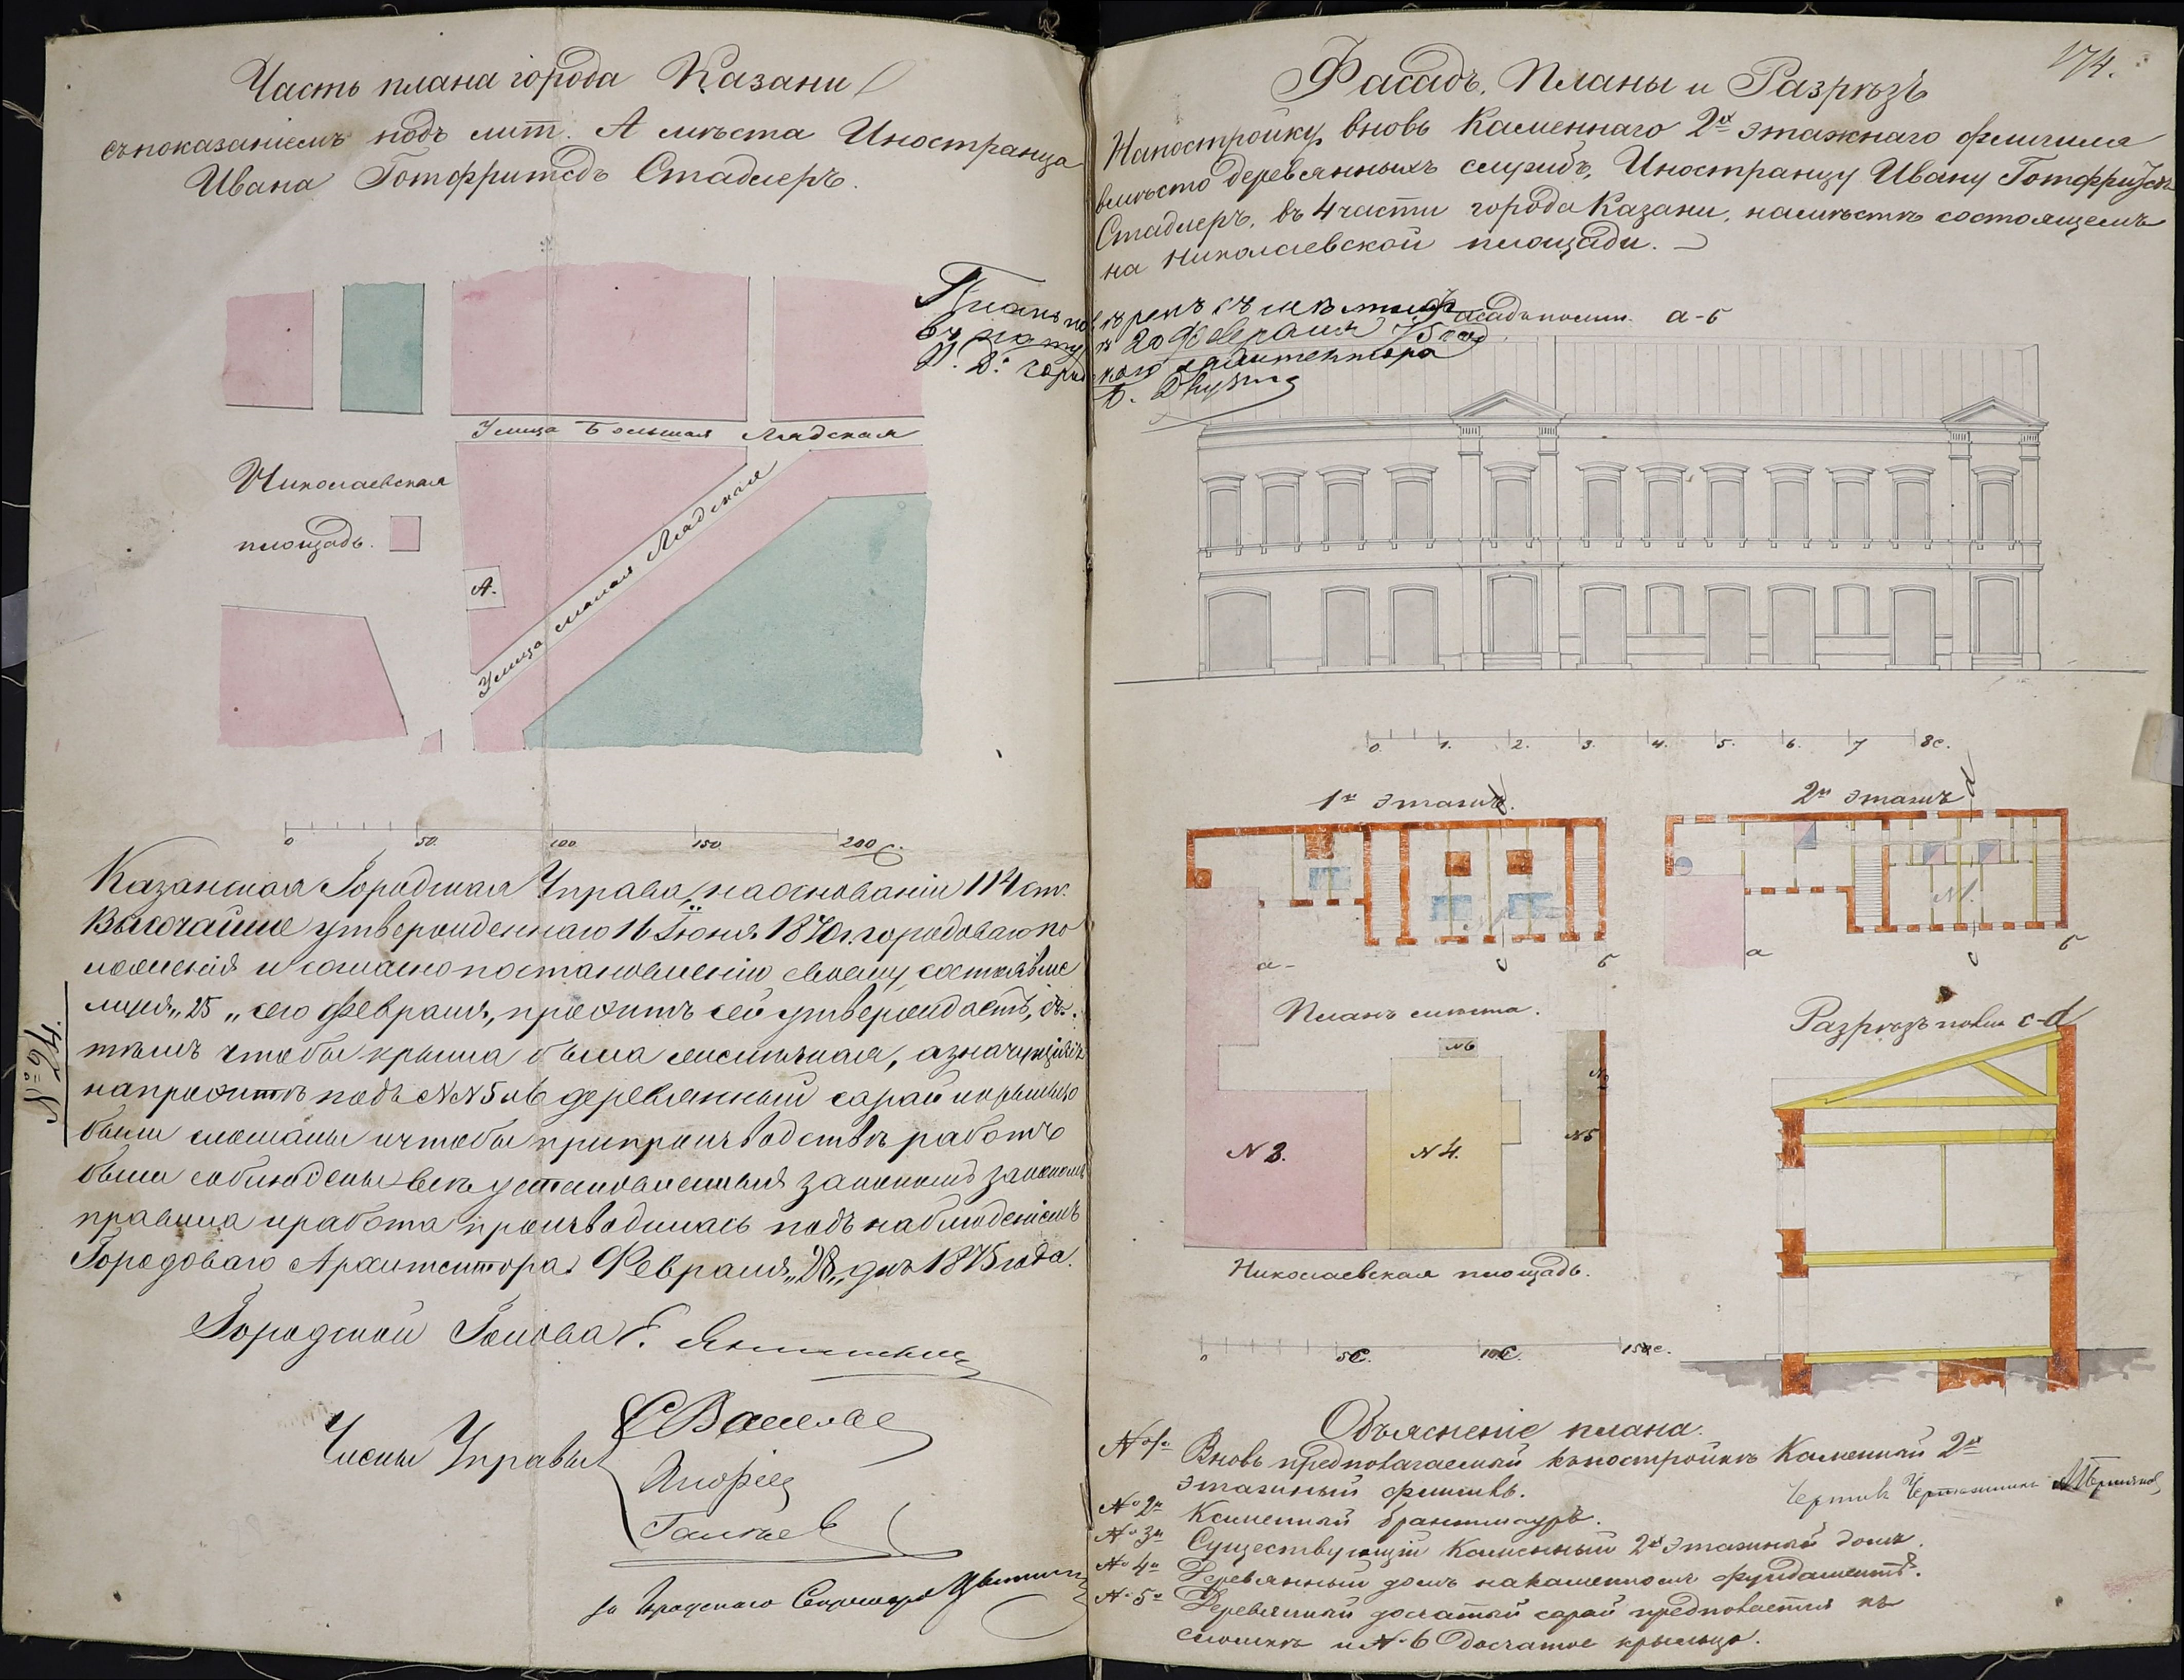 Часть плана города Казани
съ показаніемъ подъ лит. А мѣста Иностранца
Ивана Готфритсдъ Стадлеръ.
Улица Большая Лядская
Николаевская
площадь.
А.
Улица малая Лядская
0 50. 100 150 200 С.
Казанская Городская Управа, на основаніи 114 ст.
Высочайше утвержденнаго 16 Іюня 1870 г. городоваго по
ложенія и согласно постановленію своему, состоявше
муся „25„ сего Февраля, проэктъ сей утверждаетъ, съ
тѣмъ чтобы крыша была желѣзная, а значущіеся
на проэктѣ подъ №№ 5 и 6 деревянный сарай и крыльцо
были сломаны и чтобы при производствѣ работъ
были соблюдены всѣ установленныя закономъ
правила и работа производилась подъ наблюденіемъ
Городоваго Архитектора. Февраля „28„ дня 1875 года.
№ 74.
Городской Голова Е.
Члены Управы
За Городскаго Секретаря
174.
Фасадъ, Планы и Разрѣзъ
На постройку, вновь Каменнаго 2хъ этажнаго флигиля
вмѣсто деревянныхъ служБъ, Иностранцу Ивану Готфритсдъ
Стадлеръ, въ 4 части города Казани, на мѣстѣ состоящемъ
на Николаевской площади.
Планъ повѣренъ съ мѣстностью
въ натурѣ 20 Февраля 75 год
И. Д. городскаго архитектора
Фасадъ по лин. а-б
0 1. 2. 3. 4. 5. 6. 7 8 с.
1й этажъ.
2й этажъ
d
d
№1.
а -
с
б
а
с
б
Планъ мѣста.
Разрѣзъ по лин c-d
№6
№2
№ 3.
№ 4.
№5
Николаевская площадь.
0 5 С. 10 С. 15 с.
Объясненіе плана.
№ 1й Вновь предполагаемый къ постройкѣ Каменный 2хъ
этажный флигиль.
Чертилъ
№ 2й Каменный брантмауръ.
№ 3й Существующій Каменный 2хъ этажный домъ.
№ 4й Деревянный домъ на каменномъ фундаментѣ.
№ 5й Деревянный досчатый сарай предполается къ
сломкѣ и № 6 досчатое крыльцо.